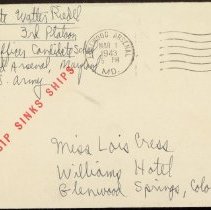 Walter Riedel
3rd Platoon
Officer Candidate School
Arsenal, Maryland
S. Army
ARSENAL
MAR 1
1943
PM
MD.
IP SINKS SHIPS
Miss Lois Cress
Williams Hotel
Glenwood Springs, Colo